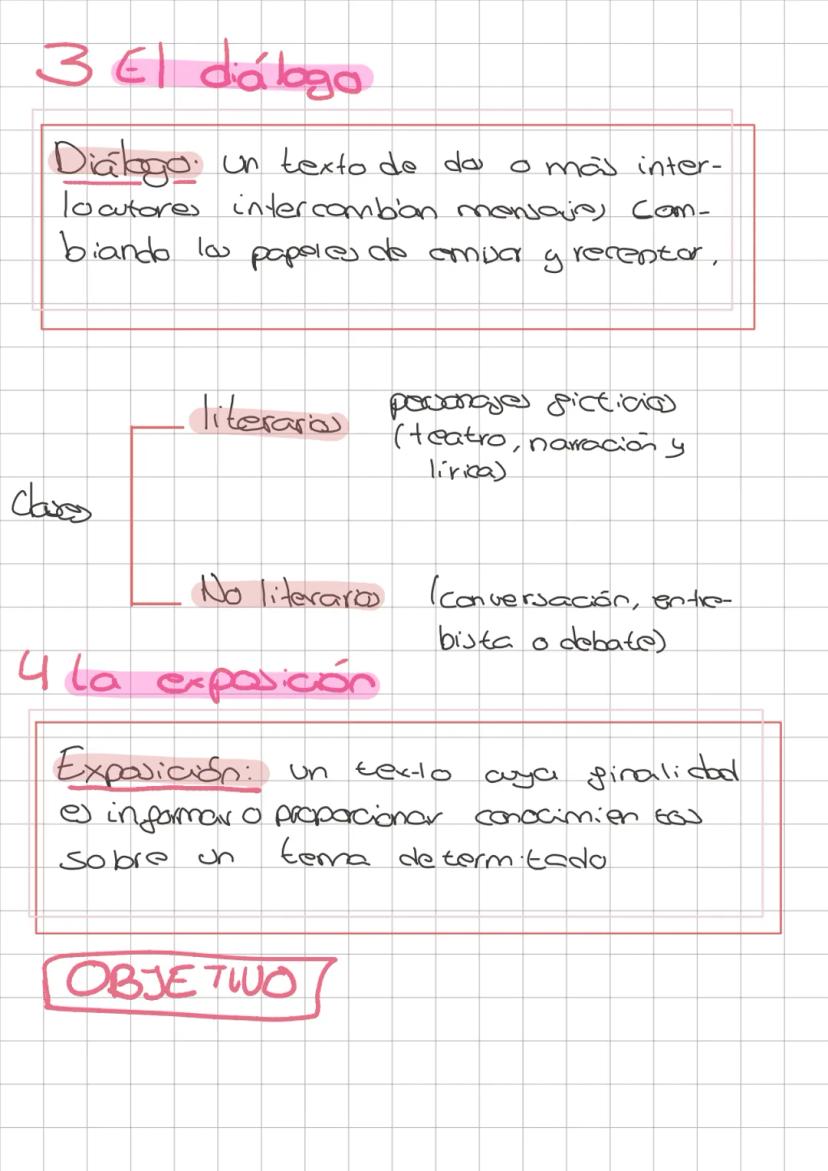 3 El diálogo
Diálogo: un texto de dos o más inter-
locutores intercambian mensajes cam-
biando los papeles de emisor y receptor.
literarios
personajes ficticios
(teatro, narración y
lírica)
Clases
No literarios
(conversación, entre-
bista o debate)
4 La exposición
Exposición: un texto cuya finalidad
es informar o proporcionar conocimientos
sobre un tema determitado
OBJETIVO